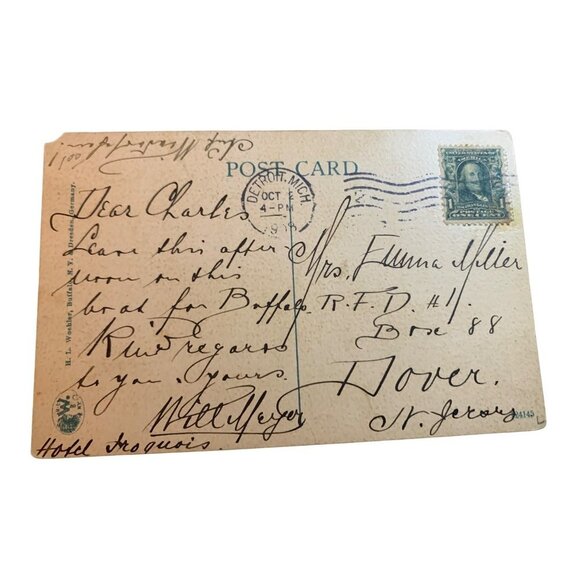 POST CARD
DETROIT, MICH.
OCT
4-PM
UNITED STATES
ONE CENT
Dear Charles
Leave this after
noon on this
boat for Buffalo
Kind regards
to you. yours.
Will Meyer
Hotel Iroquois.
Mrs. Emma Miller
R.F.D. #1.
Box 88
Dover.
N. Jersey
H. L. Woehler, Buffalo, N. Y. & Dresden, Germany.